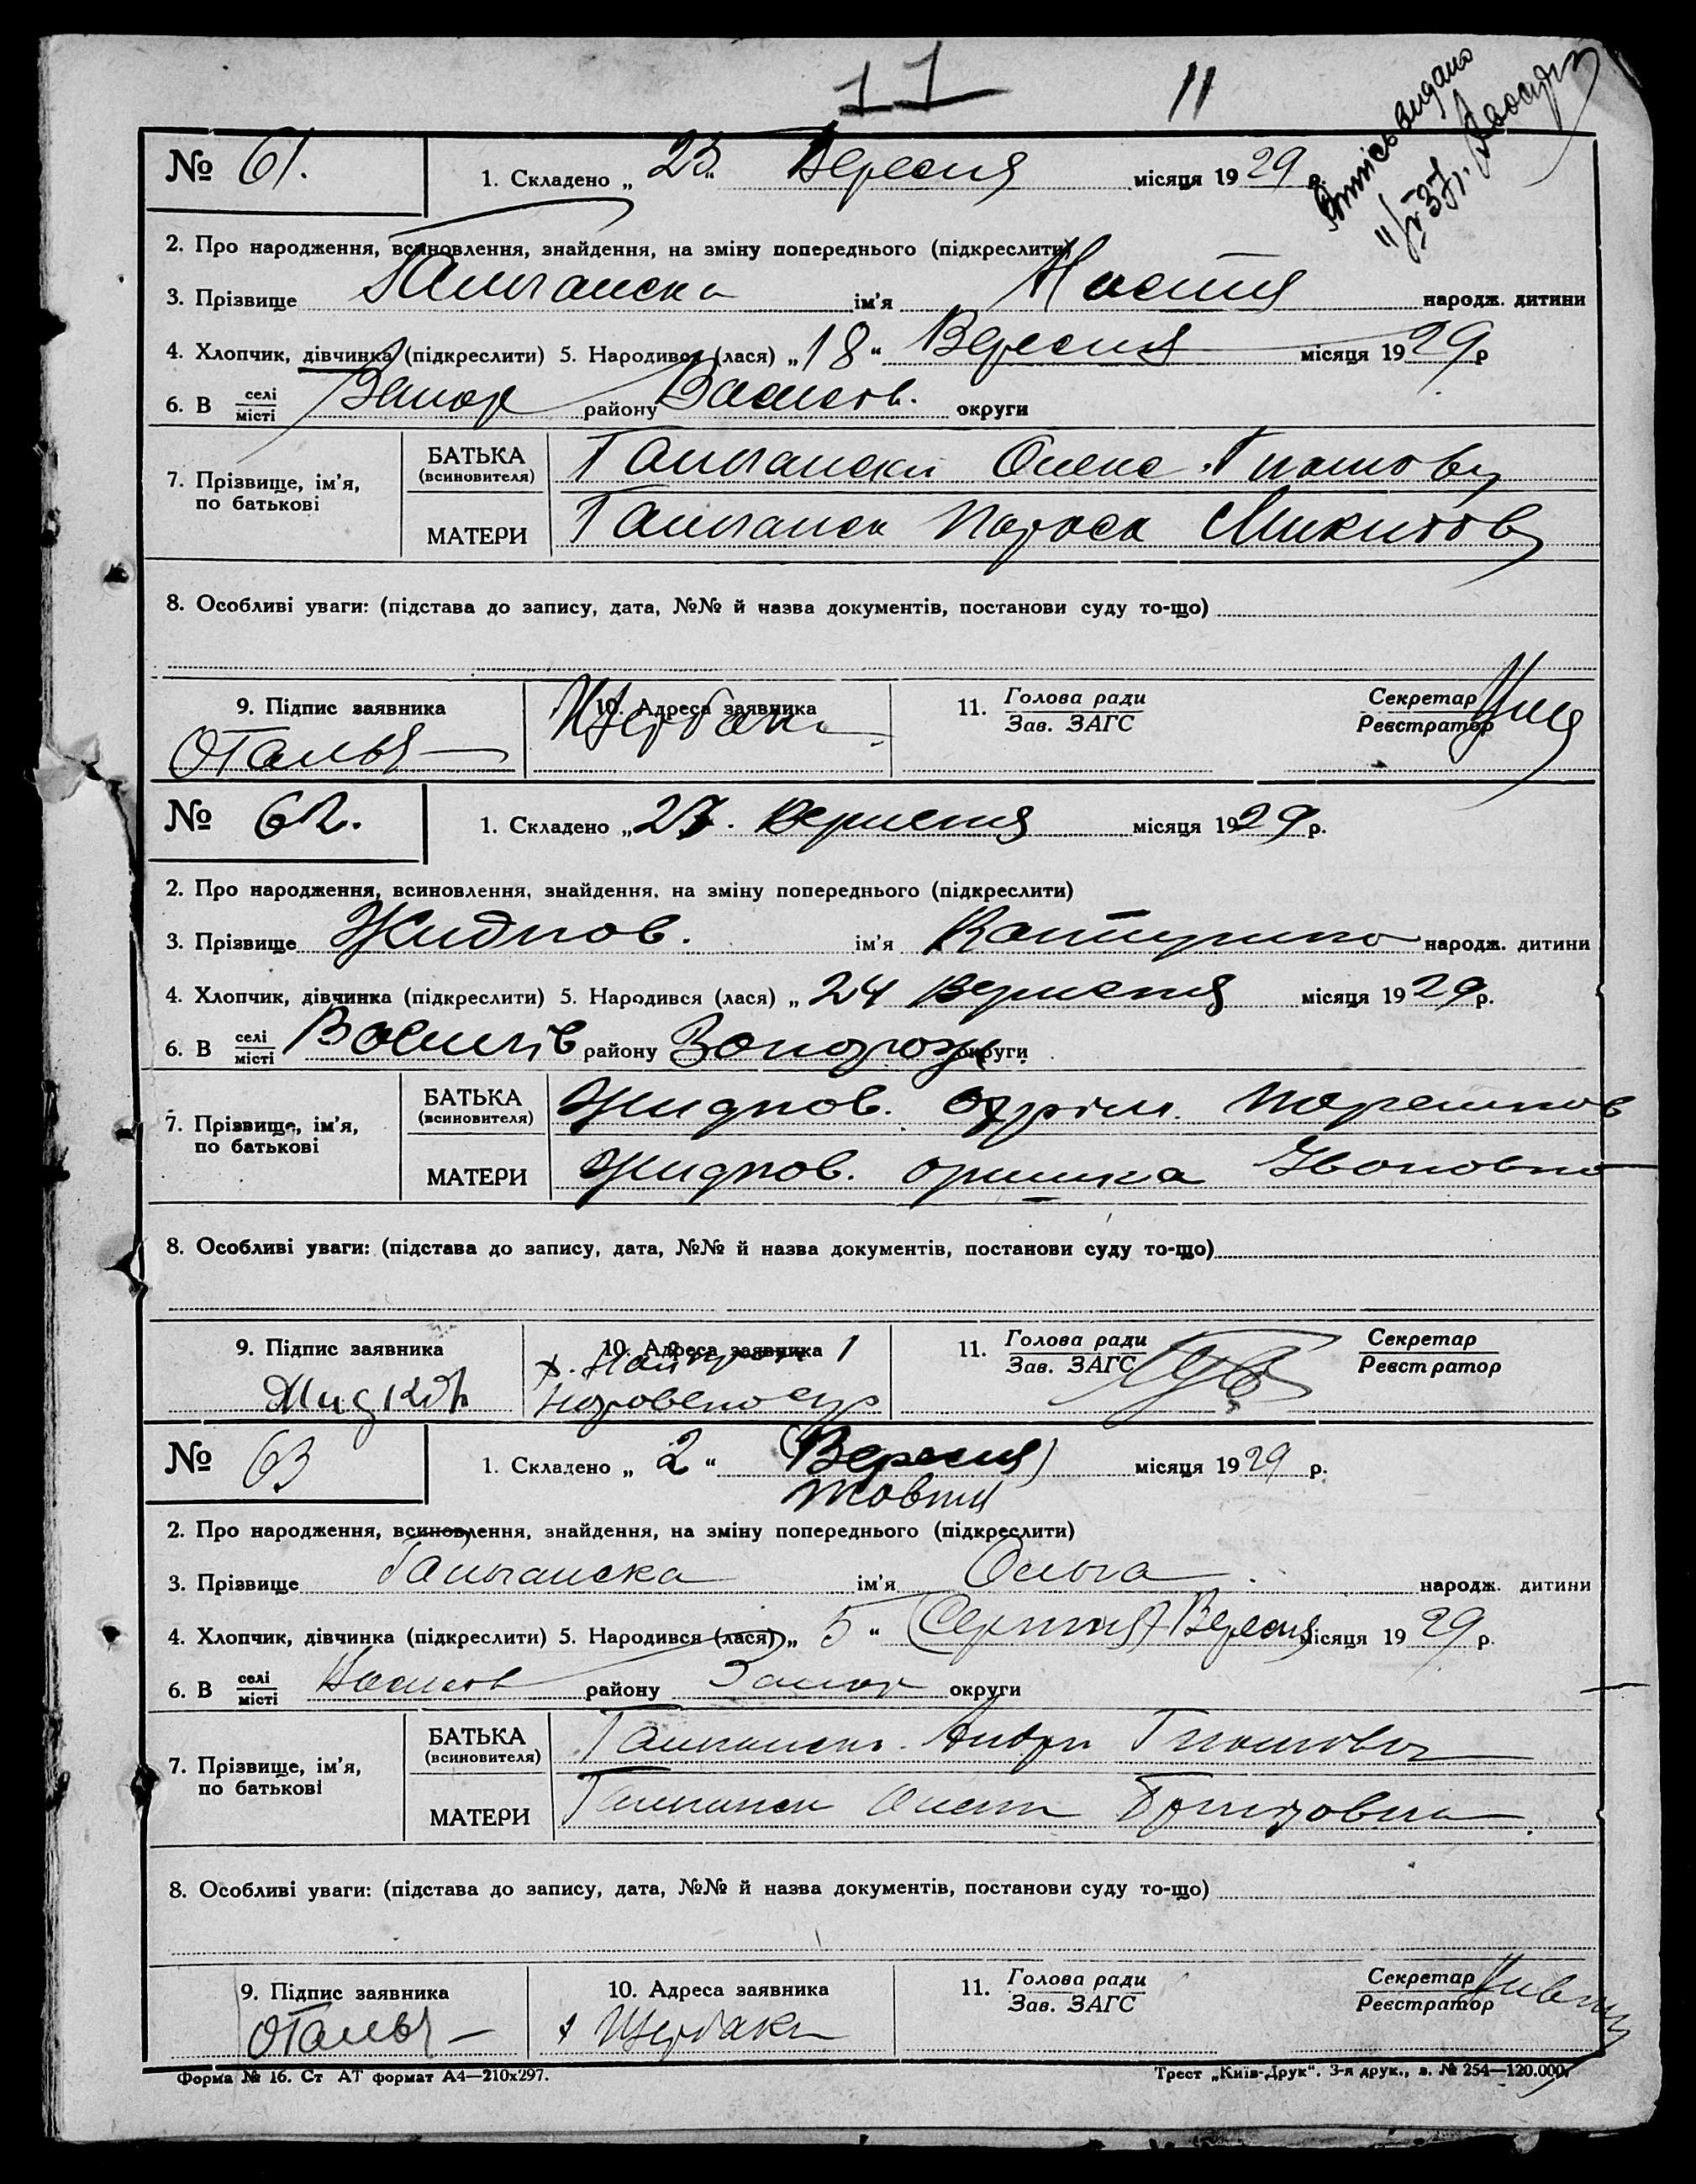 11 11
№ 61. 1. Складено „ 25 “ Вересня місяця 1929 р.
2. Про народження, всиновлення, знайдення, на зміну попереднього (підкреслити)
3. Прізвище Гальганска ім'я Настя народж. дитини
4. Хлопчик, дівчинка (підкреслити) 5. Народився (лася) „ 18 “ Вересня місяця 1929 р
6. В селі місті Запор району Василів. округи
7. Прізвище, ім'я, по батькові
БАТЬКА (всиновителя) Гальгански Олекс
МАТЕРИ Гальганск Параска Микитов
8. Особливі уваги: (підстава до запису, дата, №№ й назва документів, постанови суду то-що)
9. Підпис заявника 10. Адреса заявника 11. Голова ради Зав. ЗАГС Секретар Реєстратор
ОГальг Щербаки
№ 62. 1. Складено „ 27. Вересня місяця 1929 р.
2. Про народження, всиновлення, знайдення, на зміну попереднього (підкреслити)
3. Прізвище Жидков. ім'я народж. дитини
4. Хлопчик, дівчинка (підкреслити) 5. Народився (лася) „ 24 Вересня місяця 1929 р.
6. В селі місті Василів району Запорож округи
7. Прізвище, ім'я, по батькові
БАТЬКА (всиновителя) Жидков.
МАТЕРИ Жидков. Оришка Ивановна
8. Особливі уваги: (підстава до запису, дата, №№ й назва документів, постанови суду то-що)
9. Підпис заявника 10. Адреса заявника 11. Голова ради Зав. ЗАГС Секретар Реєстратор
Жидков
№ 63 1. Складено „ 2 “ (Вересня) місяця 1929 р.
Жовтня
2. Про народження, всиновлення, знайдення, на зміну попереднього (підкреслити)
3. Прізвище Гальганска ім'я Ольга народж. дитини
4. Хлопчик, дівчинка (підкреслити) 5. Народився (лася) „ 5 “ (Серпня) Вересня місяця 1929 р.
6. В селі місті Василів району Запор округи
7. Прізвище, ім'я, по батькові
БАТЬКА (всиновителя) Гальганск Андри
МАТЕРИ Гальганск
8. Особливі уваги: (підстава до запису, дата, №№ й назва документів, постанови суду то-що)
9. Підпис заявника 10. Адреса заявника 11. Голова ради Зав. ЗАГС Секретар Реєстратор
ОГальг Щербаки
Форма № 16. Ст АТ формат А4—210х297. Трест „Київ-Друк“. 3-я друк., з. № 254—120.000.